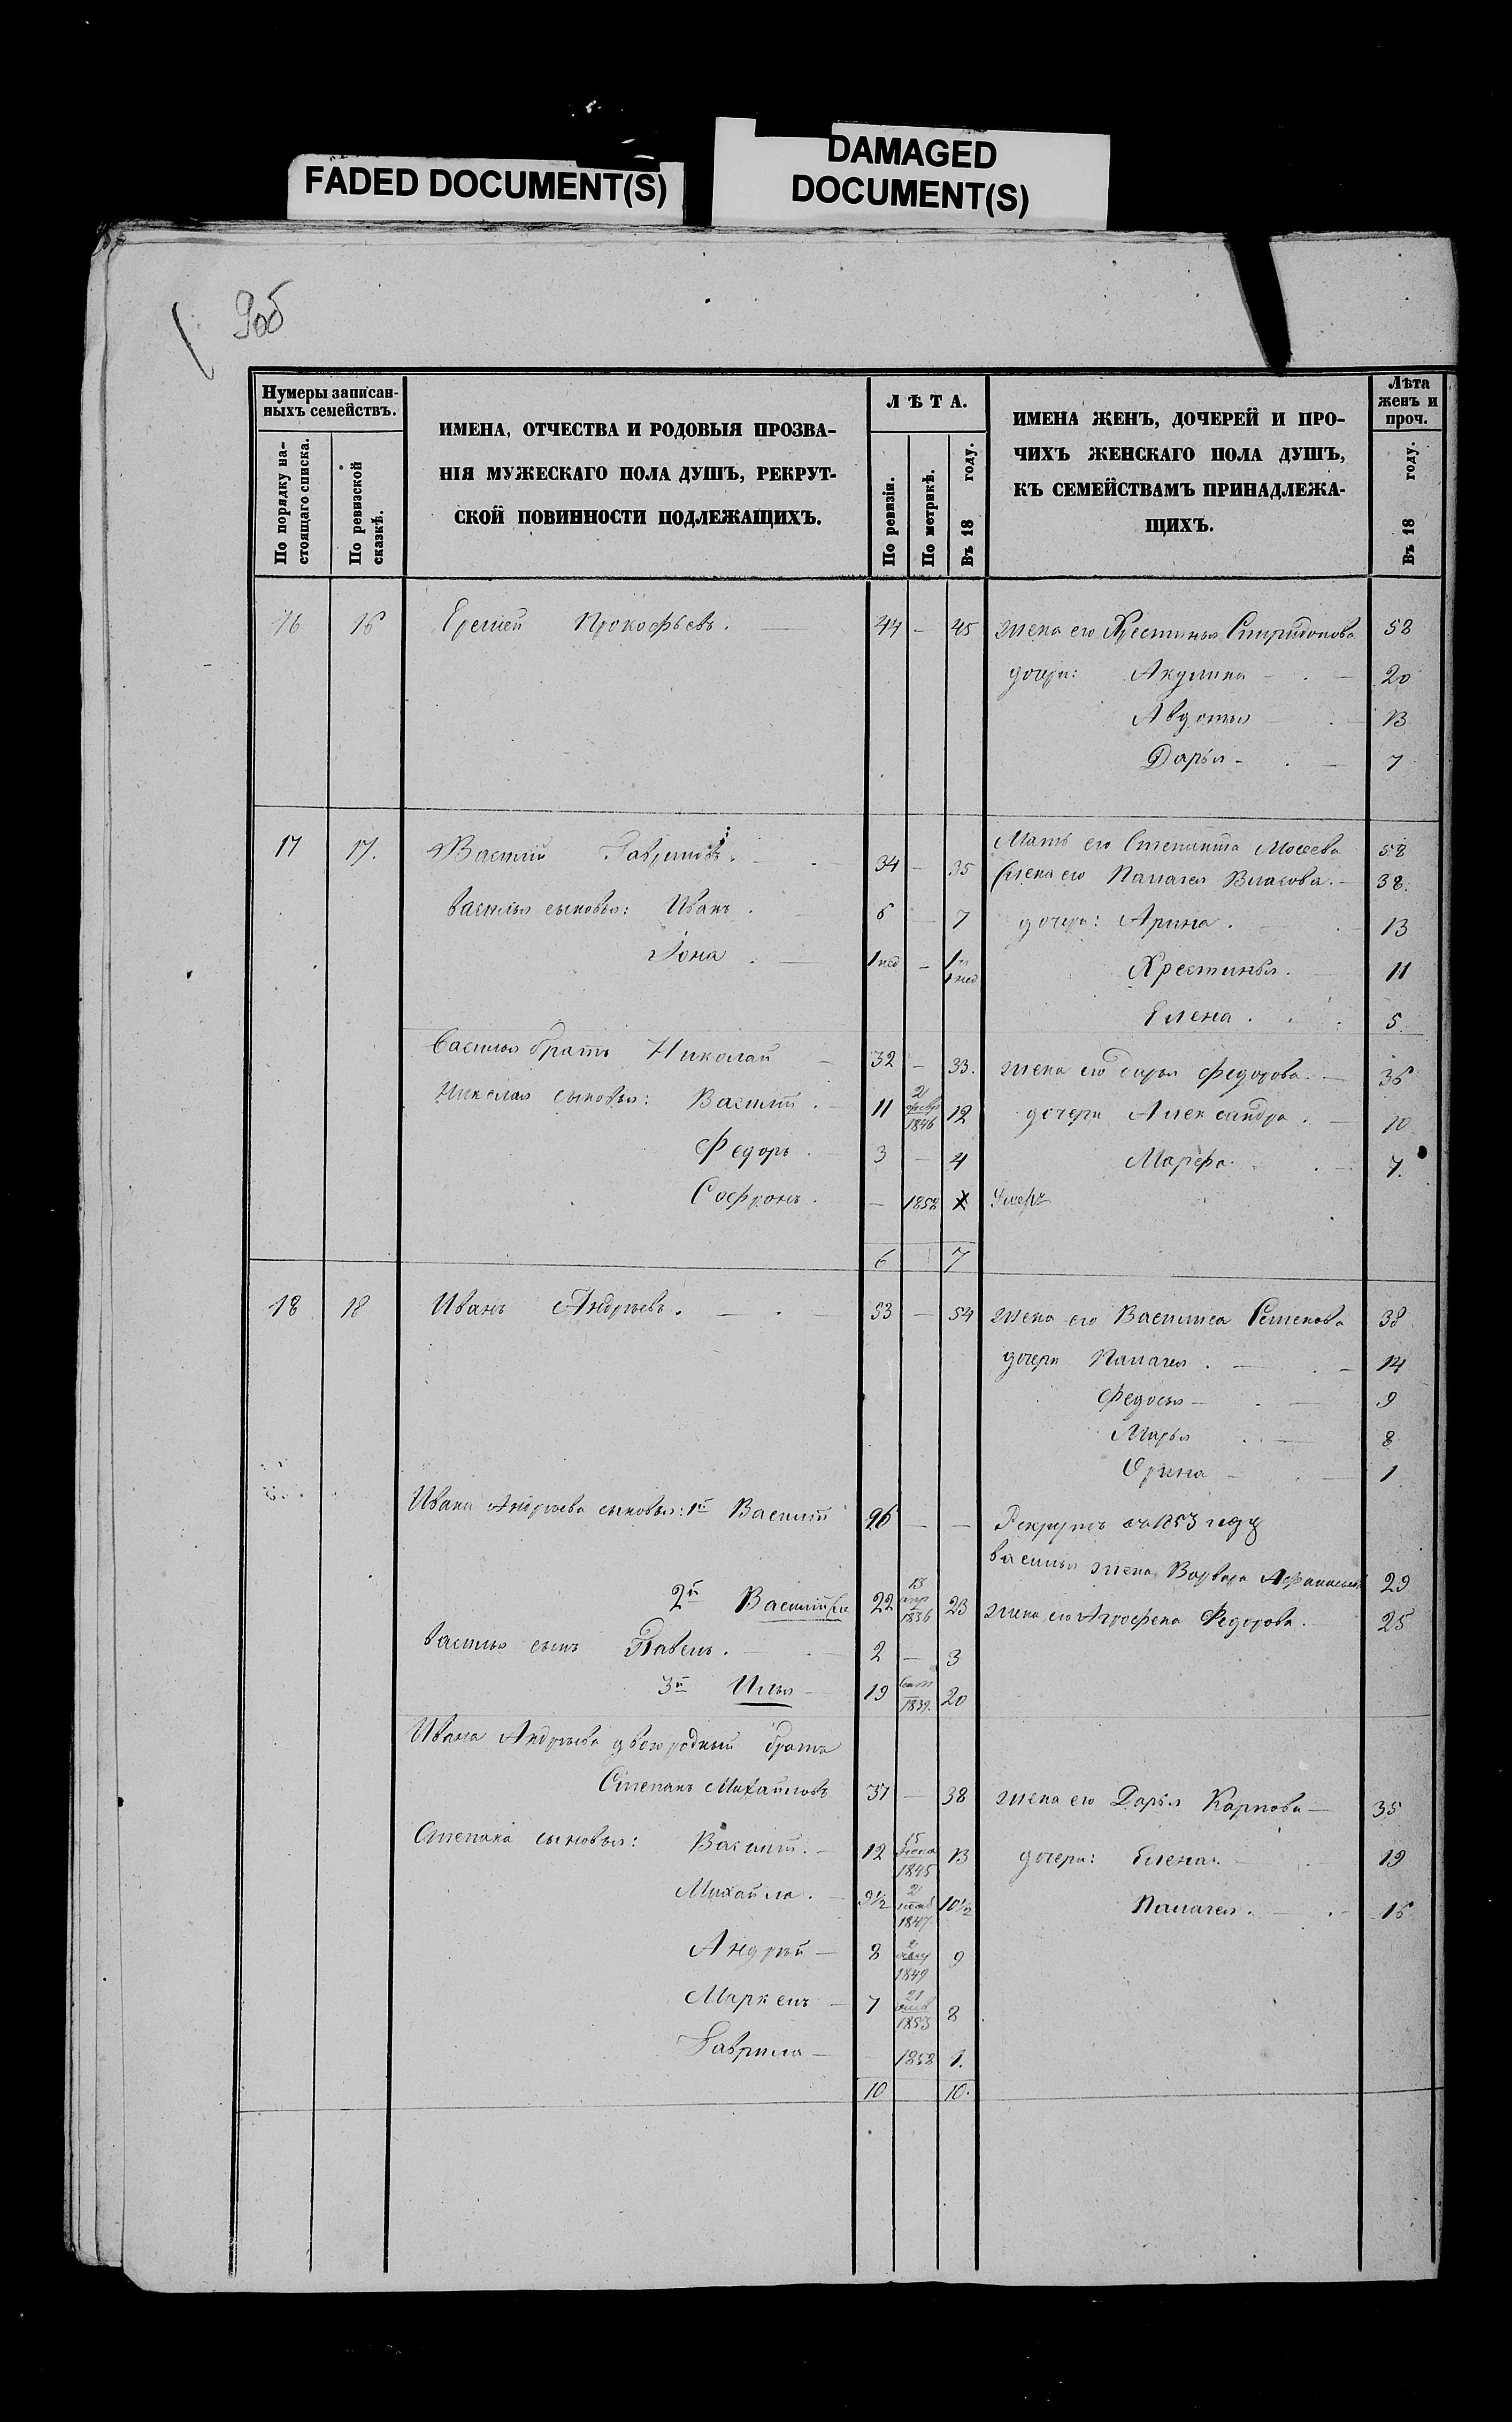 FADED DOCUMENT(S)
DAMAGED
DOCUMENT(S)
9об
Нумеры записан-
ныхъ семействъ.
По порядку на-
стоящаго списка.
По ревизской
сказкѣ.
ИМЕНА, ОТЧЕСТВА И РОДОВЫЯ ПРОЗВА-
НІЯ МУЖЕСКАГО ПОЛА ДУШЪ, РЕКРУТ-
СКОЙ ПОВИННОСТИ ПОДЛЕЖАЩИХЪ.
ЛѢТА.
По ревизіи.
По метрикѣ.
Въ 18 году.
ИМЕНА ЖЕНЪ, ДОЧЕРЕЙ И ПРО-
ЧИХЪ ЖЕНСКАГО ПОЛА ДУШЪ,
КЪ СЕМЕЙСТВАМЪ ПРИНАДЛЕЖА-
ЩИХЪ.
Лѣта
женъ и
проч.
Въ 18 году.
16 16 Еремей Прокофьевъ. 44 — 45 жена его Хрестинья Спиридонова 58
дочери: Акулина — 20
Авдотья 13
Дарья — 7
17 17. Василій Гавриловъ. 34 — 35 Мать его Степанида Мосеева 58
жена его Палагея Власова. — 38.
Василья сыновья: Иванъ. 6 — 7 дочери: Арина. 13
Іона 1 нед — 1 и 1 нед Хрестинья. 11
Елена. 5.
Василья братъ Николай — 32 — 33. жена его Дарья Федорова. — 36
Николая сыновья: Василій. — 11 2 февр 1846 12 дочери Александра. — 10
Федоръ. 3 — 4 Марфа. — 7.
Софронъ. — 1858 Умеръ
6 7
18 18 Иванъ Андреевъ. — 53 — 54 жена его Василиса Семенова 38
дочери Палагея. — 14
Федосья — 9
Марья 8
Орина — 1
Ивана Андреева сыновья: 1й Василій 26 — — Рекрутъ съ 1853 году
Василья жена Варвара 29
2й Василій 22 13 апр 1836 23 жена его Агрофена Федорова. 25
Василья сынъ Павелъ. — 2 — 3
3й Илья — 19 1839. 20
Ивана Андреева двоюродный братъ
Степанъ Михайловъ 37 — 38 жена его Дарья Карпова — 35
Степана сыновья: Василій. — 12 15 1845 13 дочери: Елена. 19
Михайла. — 9½ 2 1847. 10½ Палагея. — 16
Андрей — 8 2 1849 9
Маркелъ — 7 21 1853 8
Гаврила — 1858 1.
10 10.